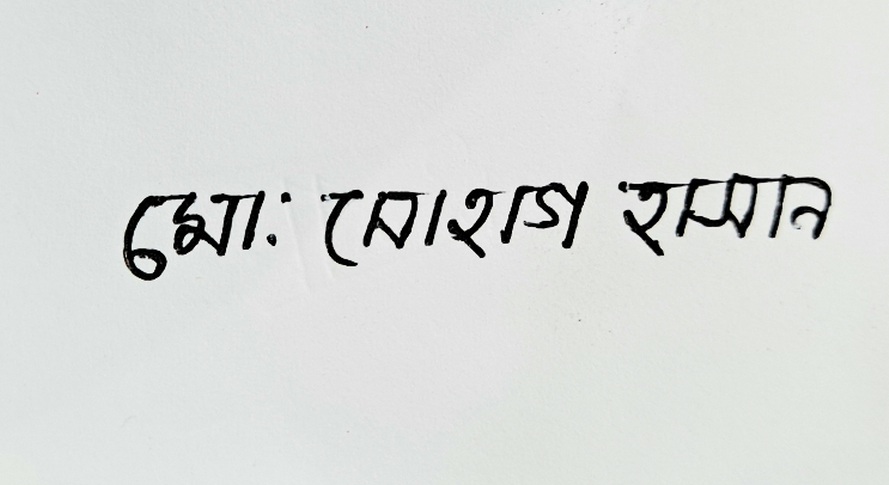 মো: সোহাগ হাসান